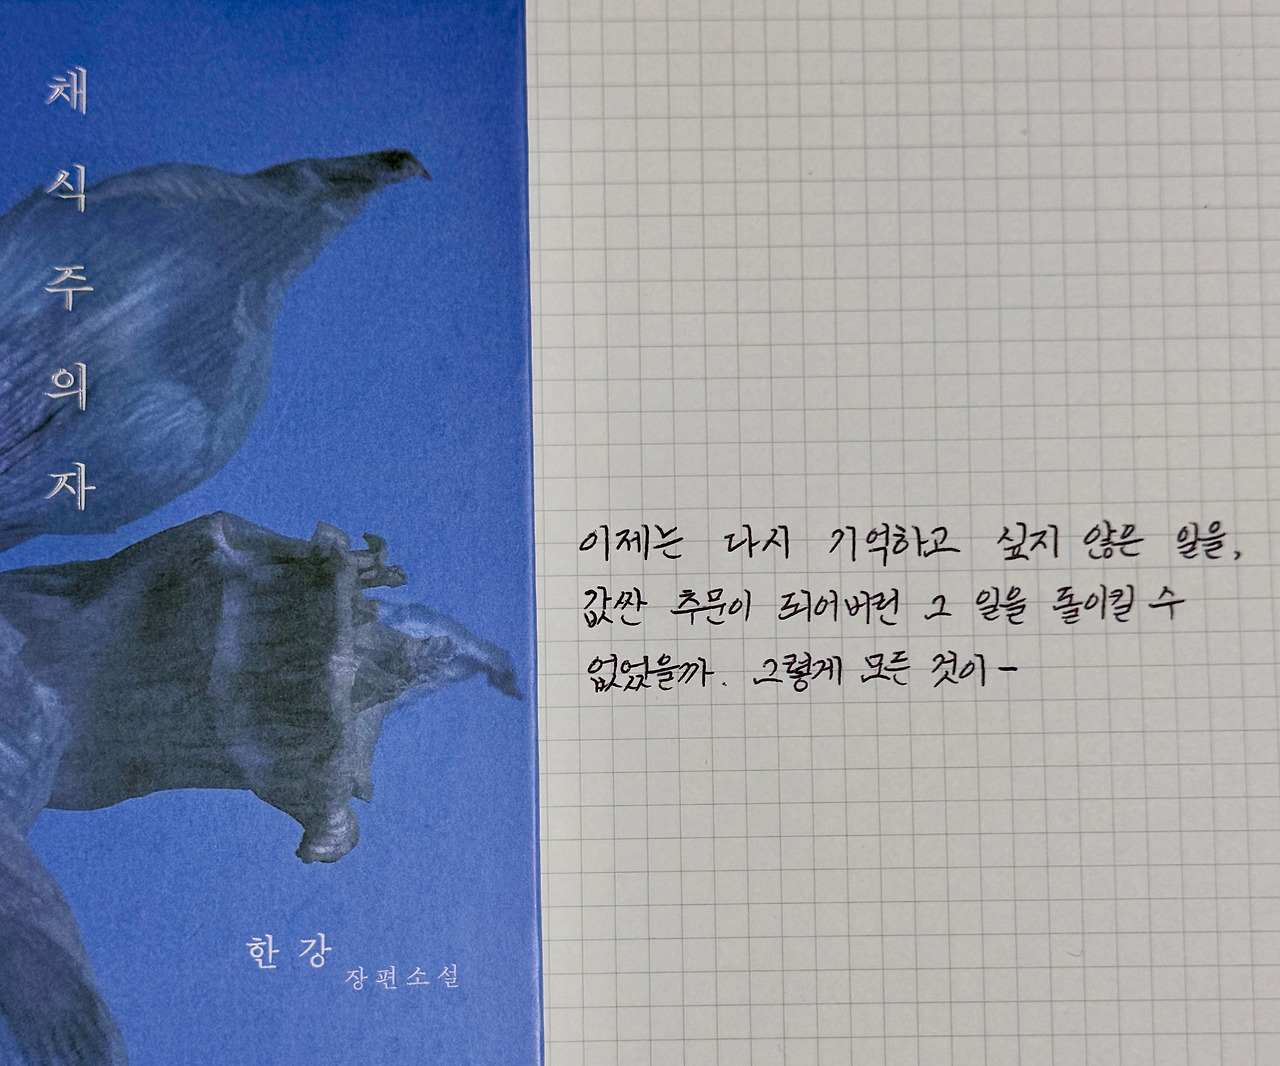 채식주의자
한강
장편소설
이제는 다시 기억하고 싶지 않은 일을,
값싼 추문이 되어버린 그 일을 돌이킬 수
없었을까. 그렇게 모든 것이 -